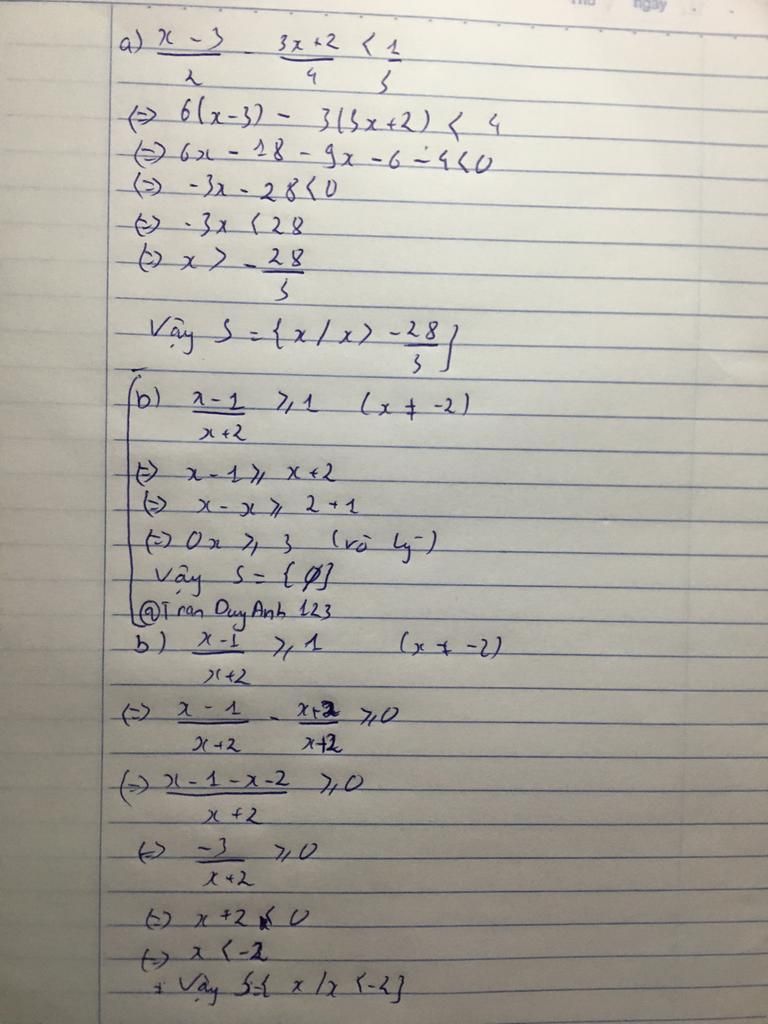 a) (x - 3)/2 - (3x+2)/4 < 1/3
(=) 6(x-3) - 3(3x+2) < 4
(=) 6x - 18 - 9x - 6 - 4 < 0
(=) -3x - 28 < 0
(=) -3x < 28
(=) x > -28/3
Vậy S = {x / x > -28/3}
b) (x-1)/(x+2) ⩾ 1 (x ≠ -2)
(=) x - 1 ⩾ x + 2
(=) x - x ⩾ 2 + 1
(=) 0x ⩾ 3 (vô lý)
Vậy S = {∅}
@Tran Duy Anh 123
b) (x-1)/(x+2) ⩾ 1 (x ≠ -2)
(=) (x - 1)/(x+2) - (x+2)/(x+2) ⩾ 0
(=) (x - 1 - x - 2)/(x+2) ⩾ 0
(=) -3/(x+2) ⩾ 0
(=) x + 2 < 0
(=) x < -2
Vậy S = { x / x < -2}